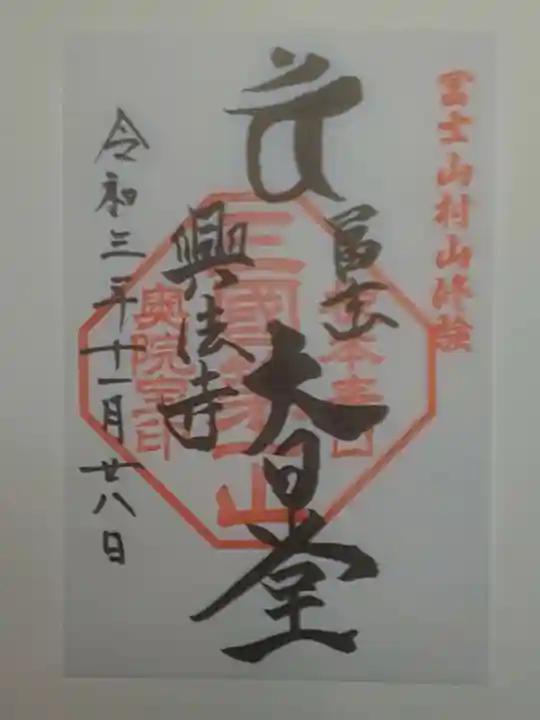 冨士山村山修験
冨士山
大日堂
興法寺
三國第一山
奥院宝印
令和三年十一月廿八日